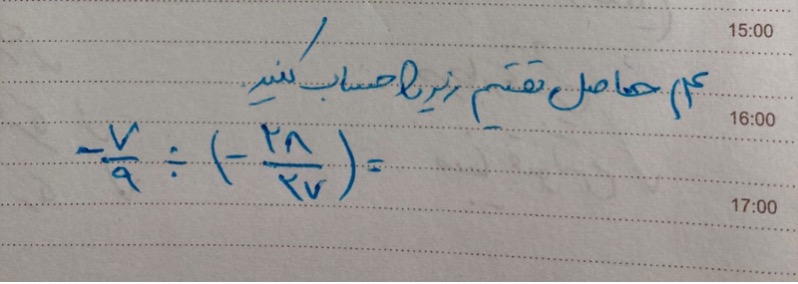 15:00
۴) حاصل تقسیم زیر را حساب کنید
16:00
-۷/۹ ÷ (-۲۸/۲۷) =
17:00